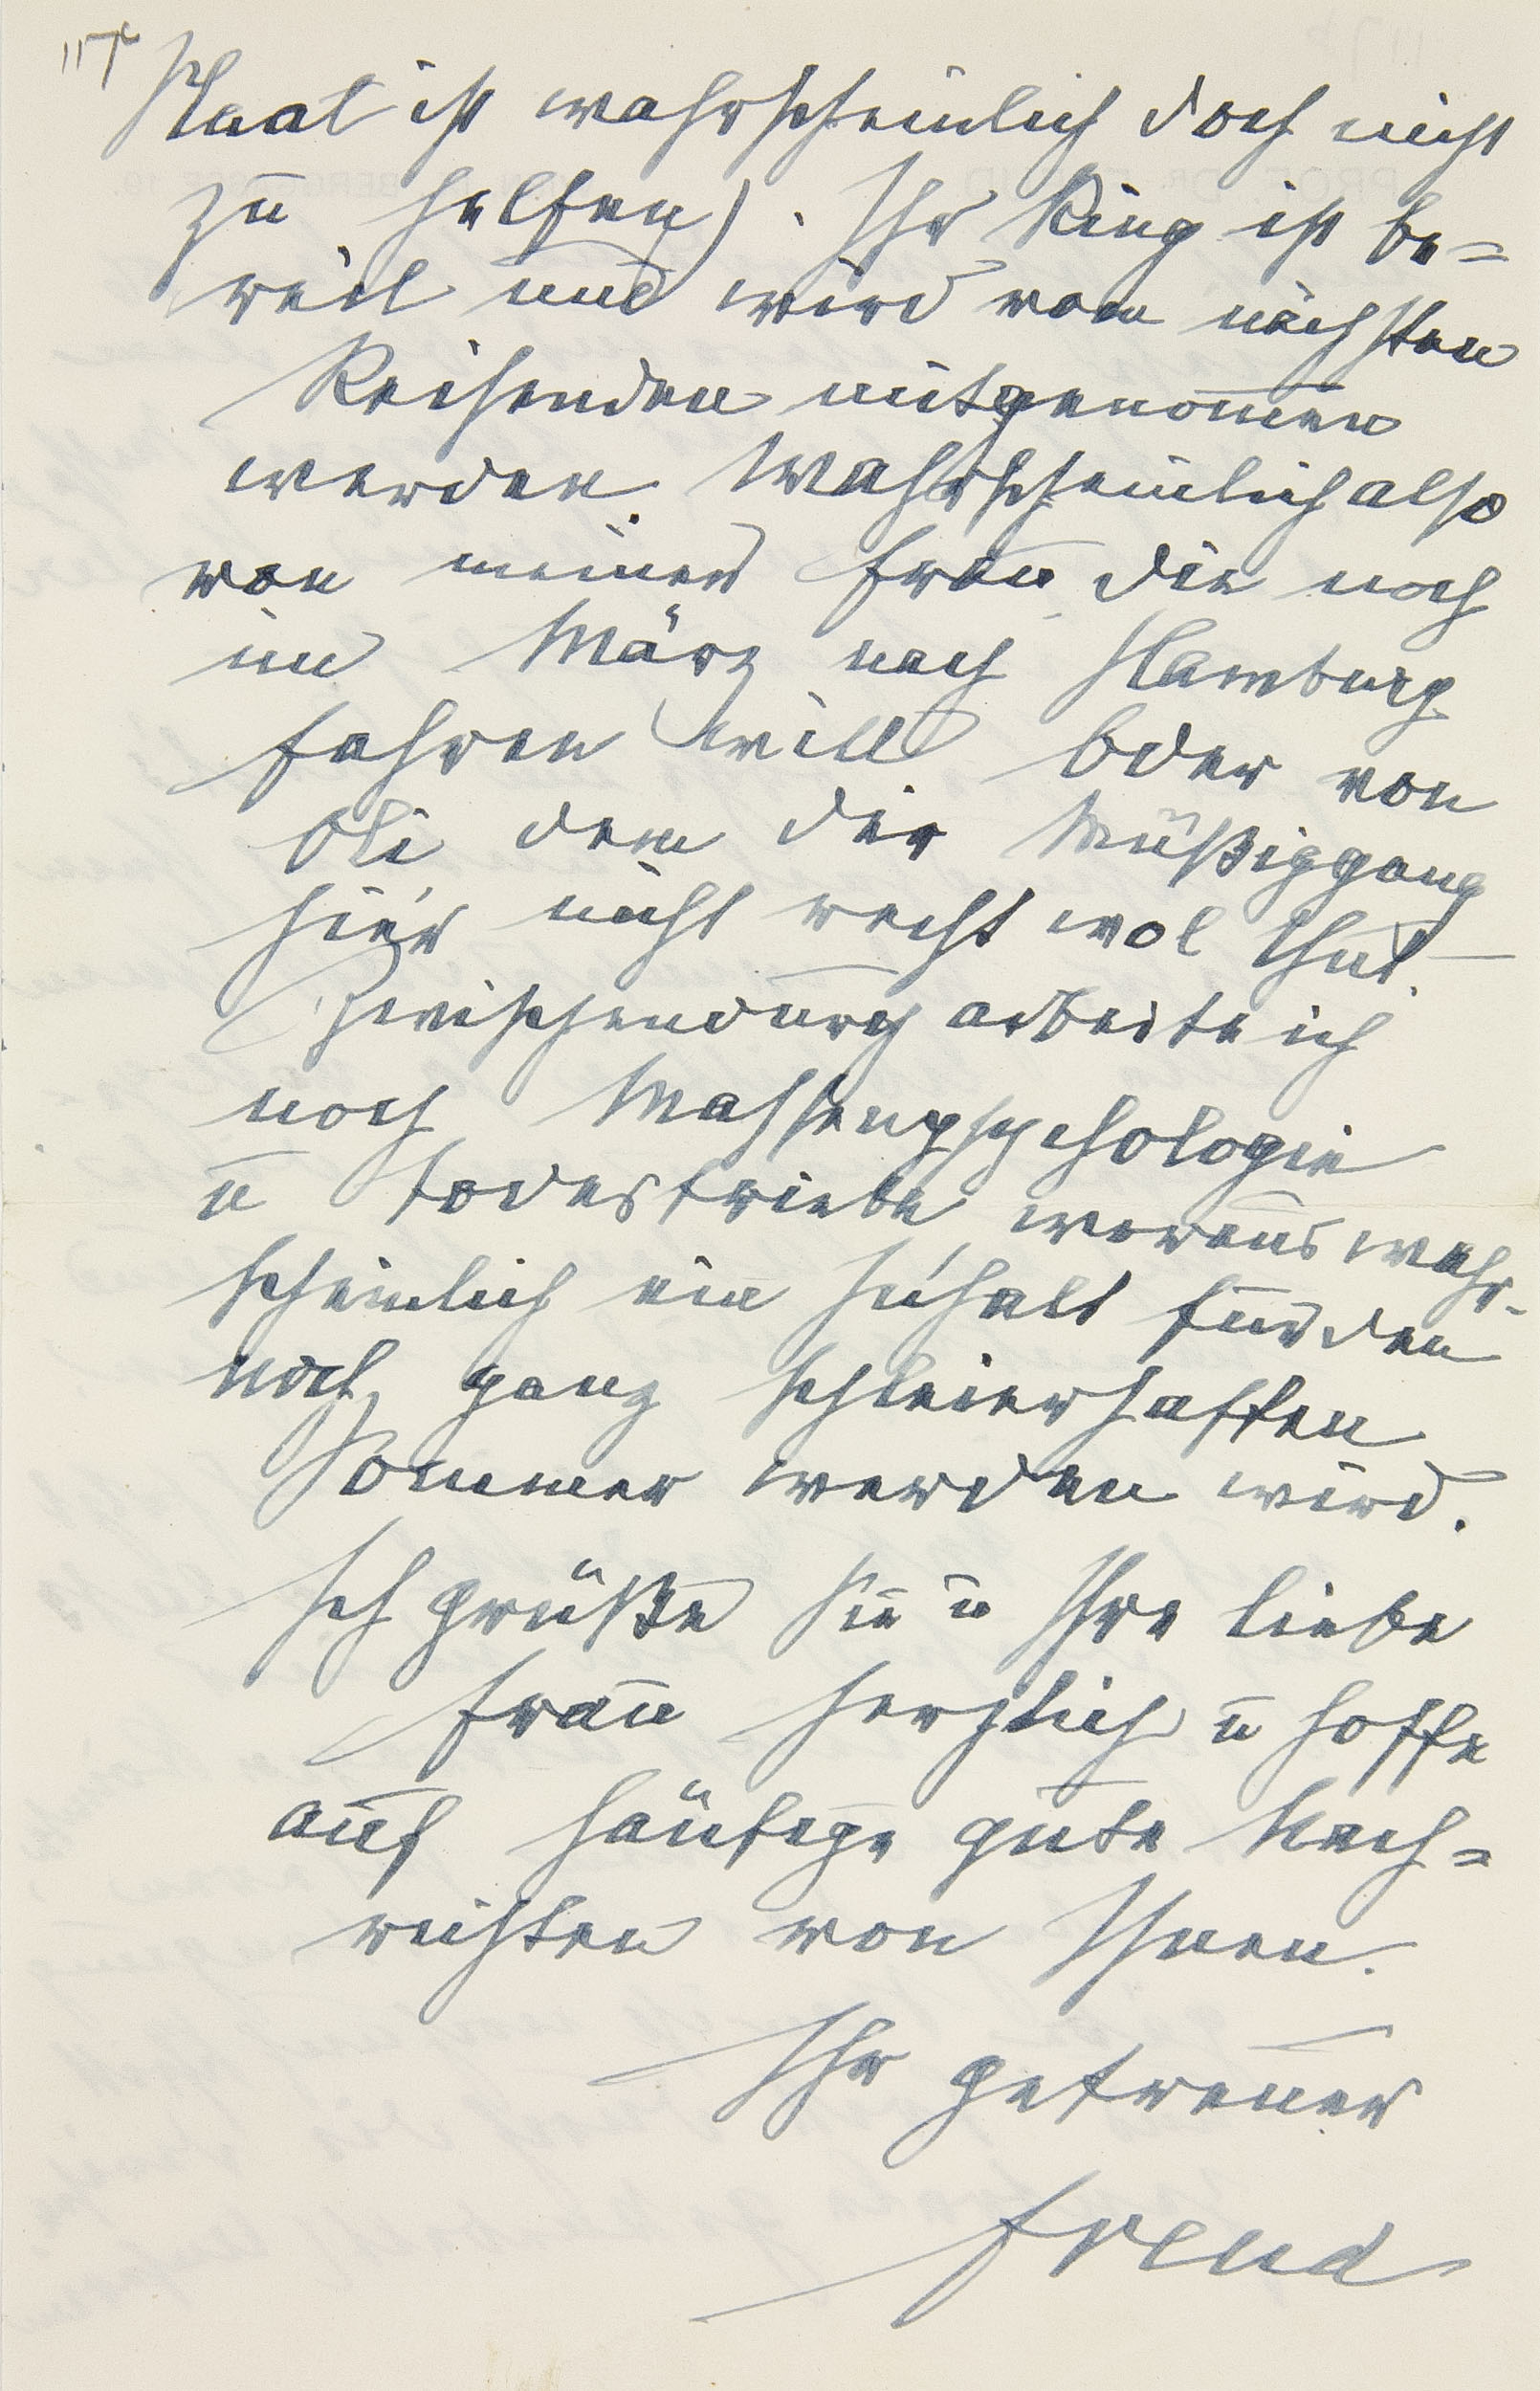 Staat ist wahrscheinlich doch nicht
zu helfen). Ihr Ring ist be-
reit und wird vom nächsten
Reisenden mitgenom̅en
werden. Wahrscheinlich also
von meiner Frau die noch
im März nach Hamburg
fahren will oder von
Oli dem der Müßiggang
hier nicht recht wol thut.
Zwischendurch arbeite ich
noch Massenpsychologie
u Todestriebe woraus wahr-
scheinlich ein Inhalt für den
noch ganz schleierhaften
Sommer werden wird.
Ich grüße Sie u Ihre liebe
Frau herzlich u hoffe
auf häufige gute Nach=
richten von Ihnen.
Ihr getreuer
Freud